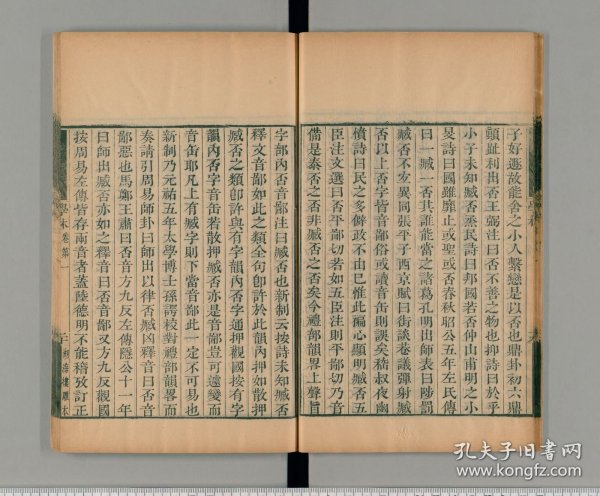 子好遯故能舍之小人繫戀是以否也鼎卦初六鼎
顛趾利出否王弼注曰否不善之物也抑詩曰於乎
小子未知臧否烝民詩曰邦國若否仲山甫明之小
旻詩曰國雖靡止或聖或否春秋昭公五年左氏傳
曰一臧一否其誰能當之諸葛孔明出師表曰陟罰
臧否不宜異同張平子西京賦曰街談巷議彈射臧
否以上否字皆音鄙俗或讀音缶則誤矣嵇叔夜幽
憤詩曰民之多僻政不由己惟此褊心顯明臧否五
臣注文選曰否平鄙切若如五臣注則平鄙切乃音
僃是泰否之否非臧否之否矣今禮部韻畧上聲旨
字部內否音鄙注曰臧否也新制云按詩未知臧否
釋文音鄙如此之類全句卽許於此韻內押如散押
臧否之類卽許與有字韻內否字通押觀國按有字
韻內否字音缶若散押臧否亦是音鄙豈可違變而
音缶耶凡上有臧字則下當音鄙此一定不可易也
新制乃元祐五年太學博士孫諤校對禮部韻畧而
奏請引周易師卦曰師出以律否臧凶釋音曰否音
鄙惡也馬鄭王肅曰否音方九反左傳隱公十一年
曰師出臧否亦如之釋音曰否音鄙又方九反觀國
按周易左傳皆存兩音者蓋陸德明不能稽攷訂正
學林卷第一
二
湖海樓雕本
孔夫子旧书网
www.kongfz.com